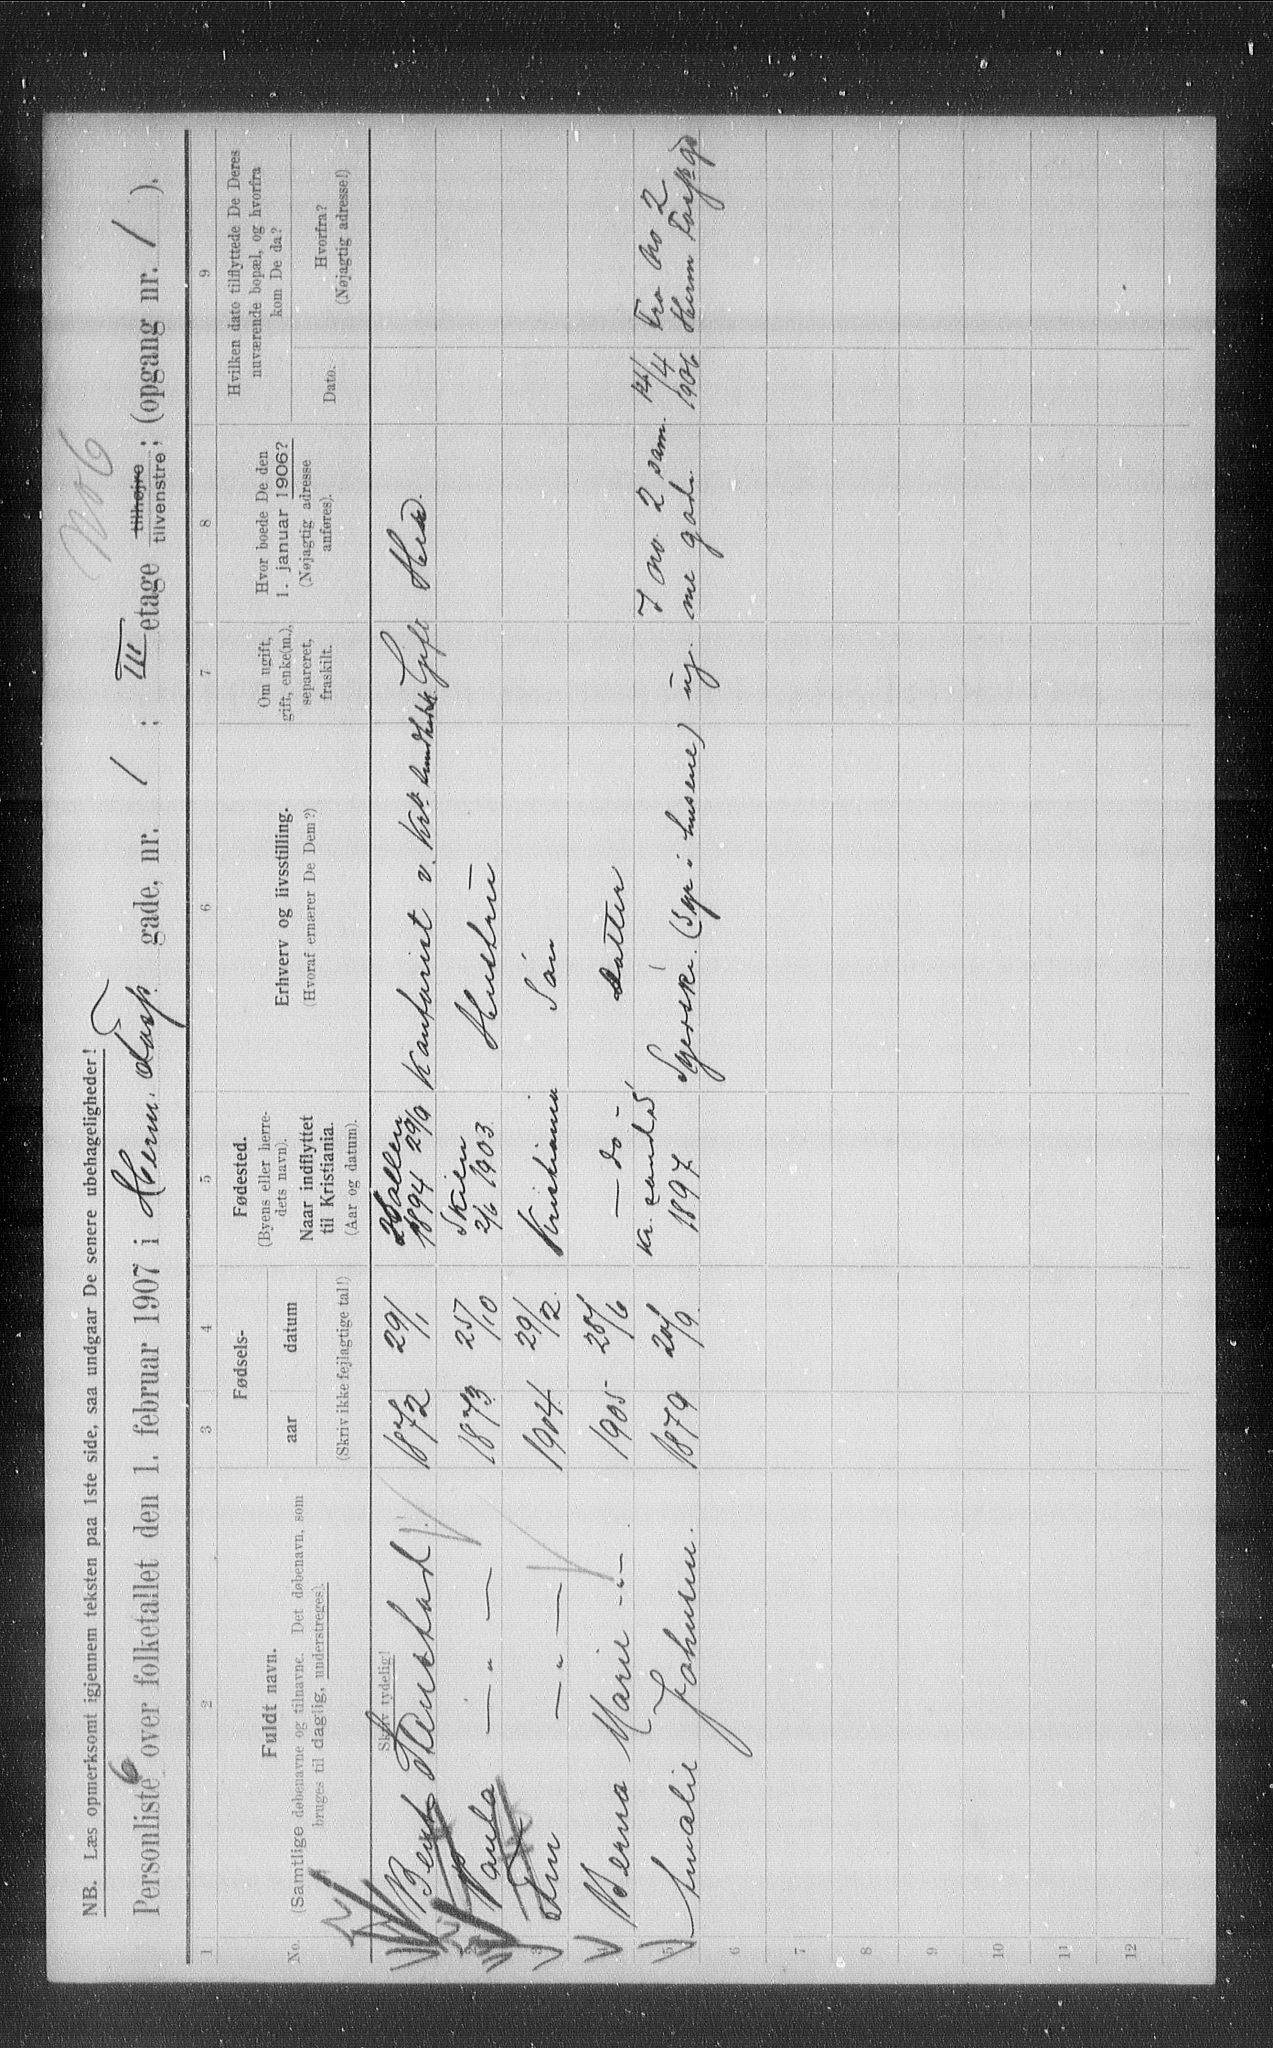 No 6
NB. Læs opmerksomt igjennem teksten paa 1ste side, saa undgaar De senere ubehageligheder!
Personliste 6 over folketallet den 1. februar 1907 i Herm. Fosp. gade, nr. 1 ; III etage tilhøjre tilvenstre ; (opgang nr. 1 ).
1 2 3 4 5 6 7 8 9
No.
Fuldt navn.
(Samtlige døbenavne og tilnavne. Det døbenavn, som
bruges til daglig, understreges).
Skriv tydelig!
Fødsels-
aar datum
(Skriv ikke fejlagtige tal!)
Fødested.
(Byens eller herre-
dets navn).
Naar indflyttet
til Kristiania.
(Aar og datum).
Erhverv og livsstilling.
(Hvoraf ernærer De Dem?)
Om ugift,
gift, enke(m.),
separeret,
fraskilt.
Hvor boede De den
1. januar 1906?
(Nøjagtig adresse
anføres).
Hvilken dato tilflyttede De Deres
nuværende bopæl, og hvorfra
kom De da?
Dato.
Hvorfra?
(Nøjagtig adresse!)
Bernt 1872 29/1 1894 29/9 Kontorist v. Gift Her.
2 Paula — „ — 1873 25/10 Skien 2/6 1903. Hustru
3 — „ — 1904. 29/2. Kristiania Søn
Berna Marie -„- 1905 25/6 — do — datter
5 Amalie Johnsen. 1879 20/9 Kr. sand S 1897. Syerske. (Syr i husene) ug. I no. 2 sam- me gade. 14/4 1906 Fra No 2 Herm Fosp gd
6
7
8
9
10
11
12